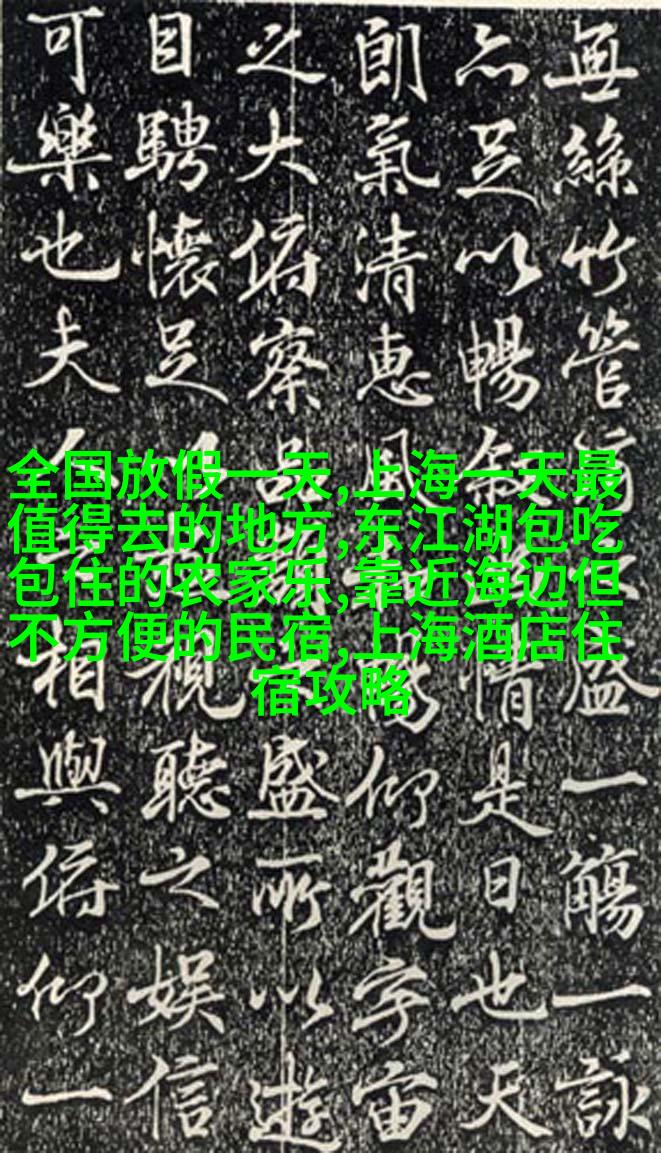 無絲竹管盛一觴一詠
亦足以暢叙情是日也天
朗氣清惠風暢仰觀宇宙
之大俯察品盛所以遊
目騁懷足視聽之娛信
可樂也夫相與俯仰一
全国放假一天,上海一天最
值得去的地方,东江湖包吃
包住的农家乐,靠近海边但
不方便的民宿,上海酒店住
宿攻略